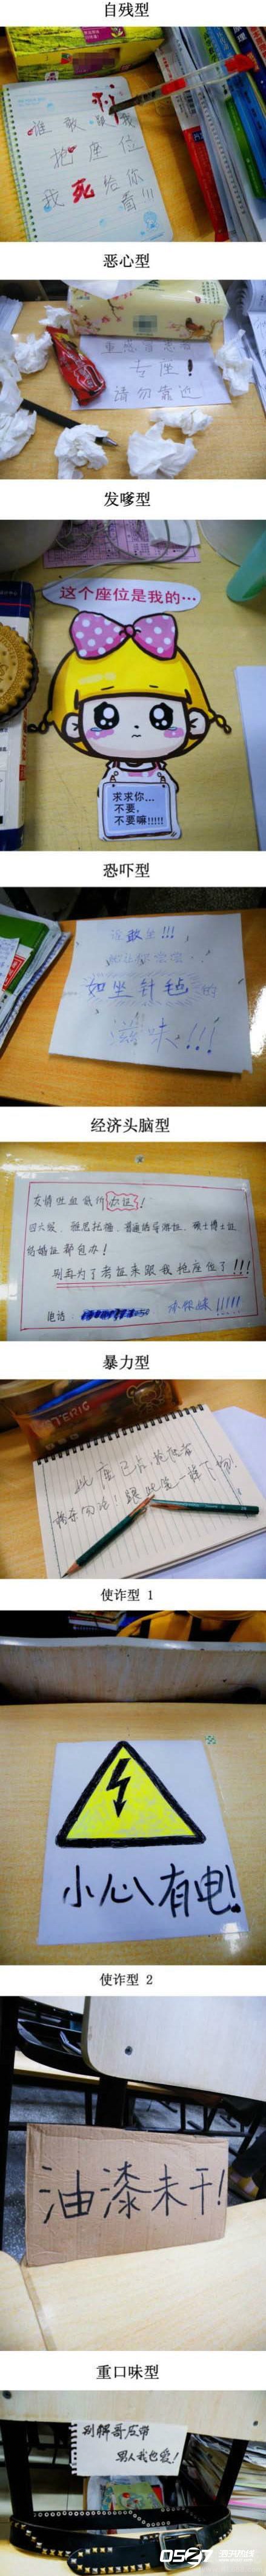 自残型
谁敢
抢座位
我死给你
看!!!
恶心型
重感冒患者
专座!
请勿靠近
发嗲型
这个座位是我的…
求求你…
不要,
不要嘛!!!!!
恐吓型
谁敢坐!!!
如坐针毡的
滋味!!!
经济头脑型
友情吐血低价办证!
四六级、雅思托福、普通话导游证、硕士博士证
结婚证都包办!
别再为了考证来跟我抢座位了!!!
电话:
暴力型
此座已占,抢座者
跟此笔一样下场!
使诈型 1
小心有电!
使诈型 2
油漆未干!
重口味型
别解哥皮带
男人我也爱!
0527